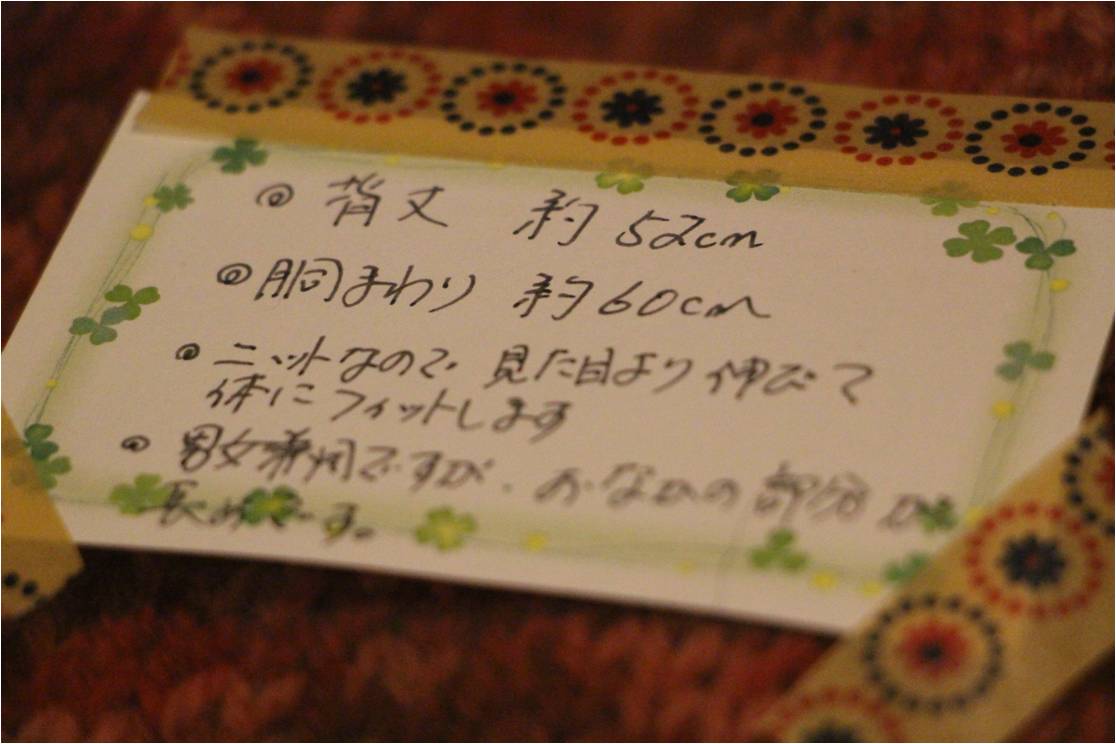 ◎ 背丈 約52cm
◎ 胴まわり 約60cm
◎ ニットなので 見た目より伸びて
体にフィットします
◎ 男女兼用ですが、おなかの部分が
長めです。